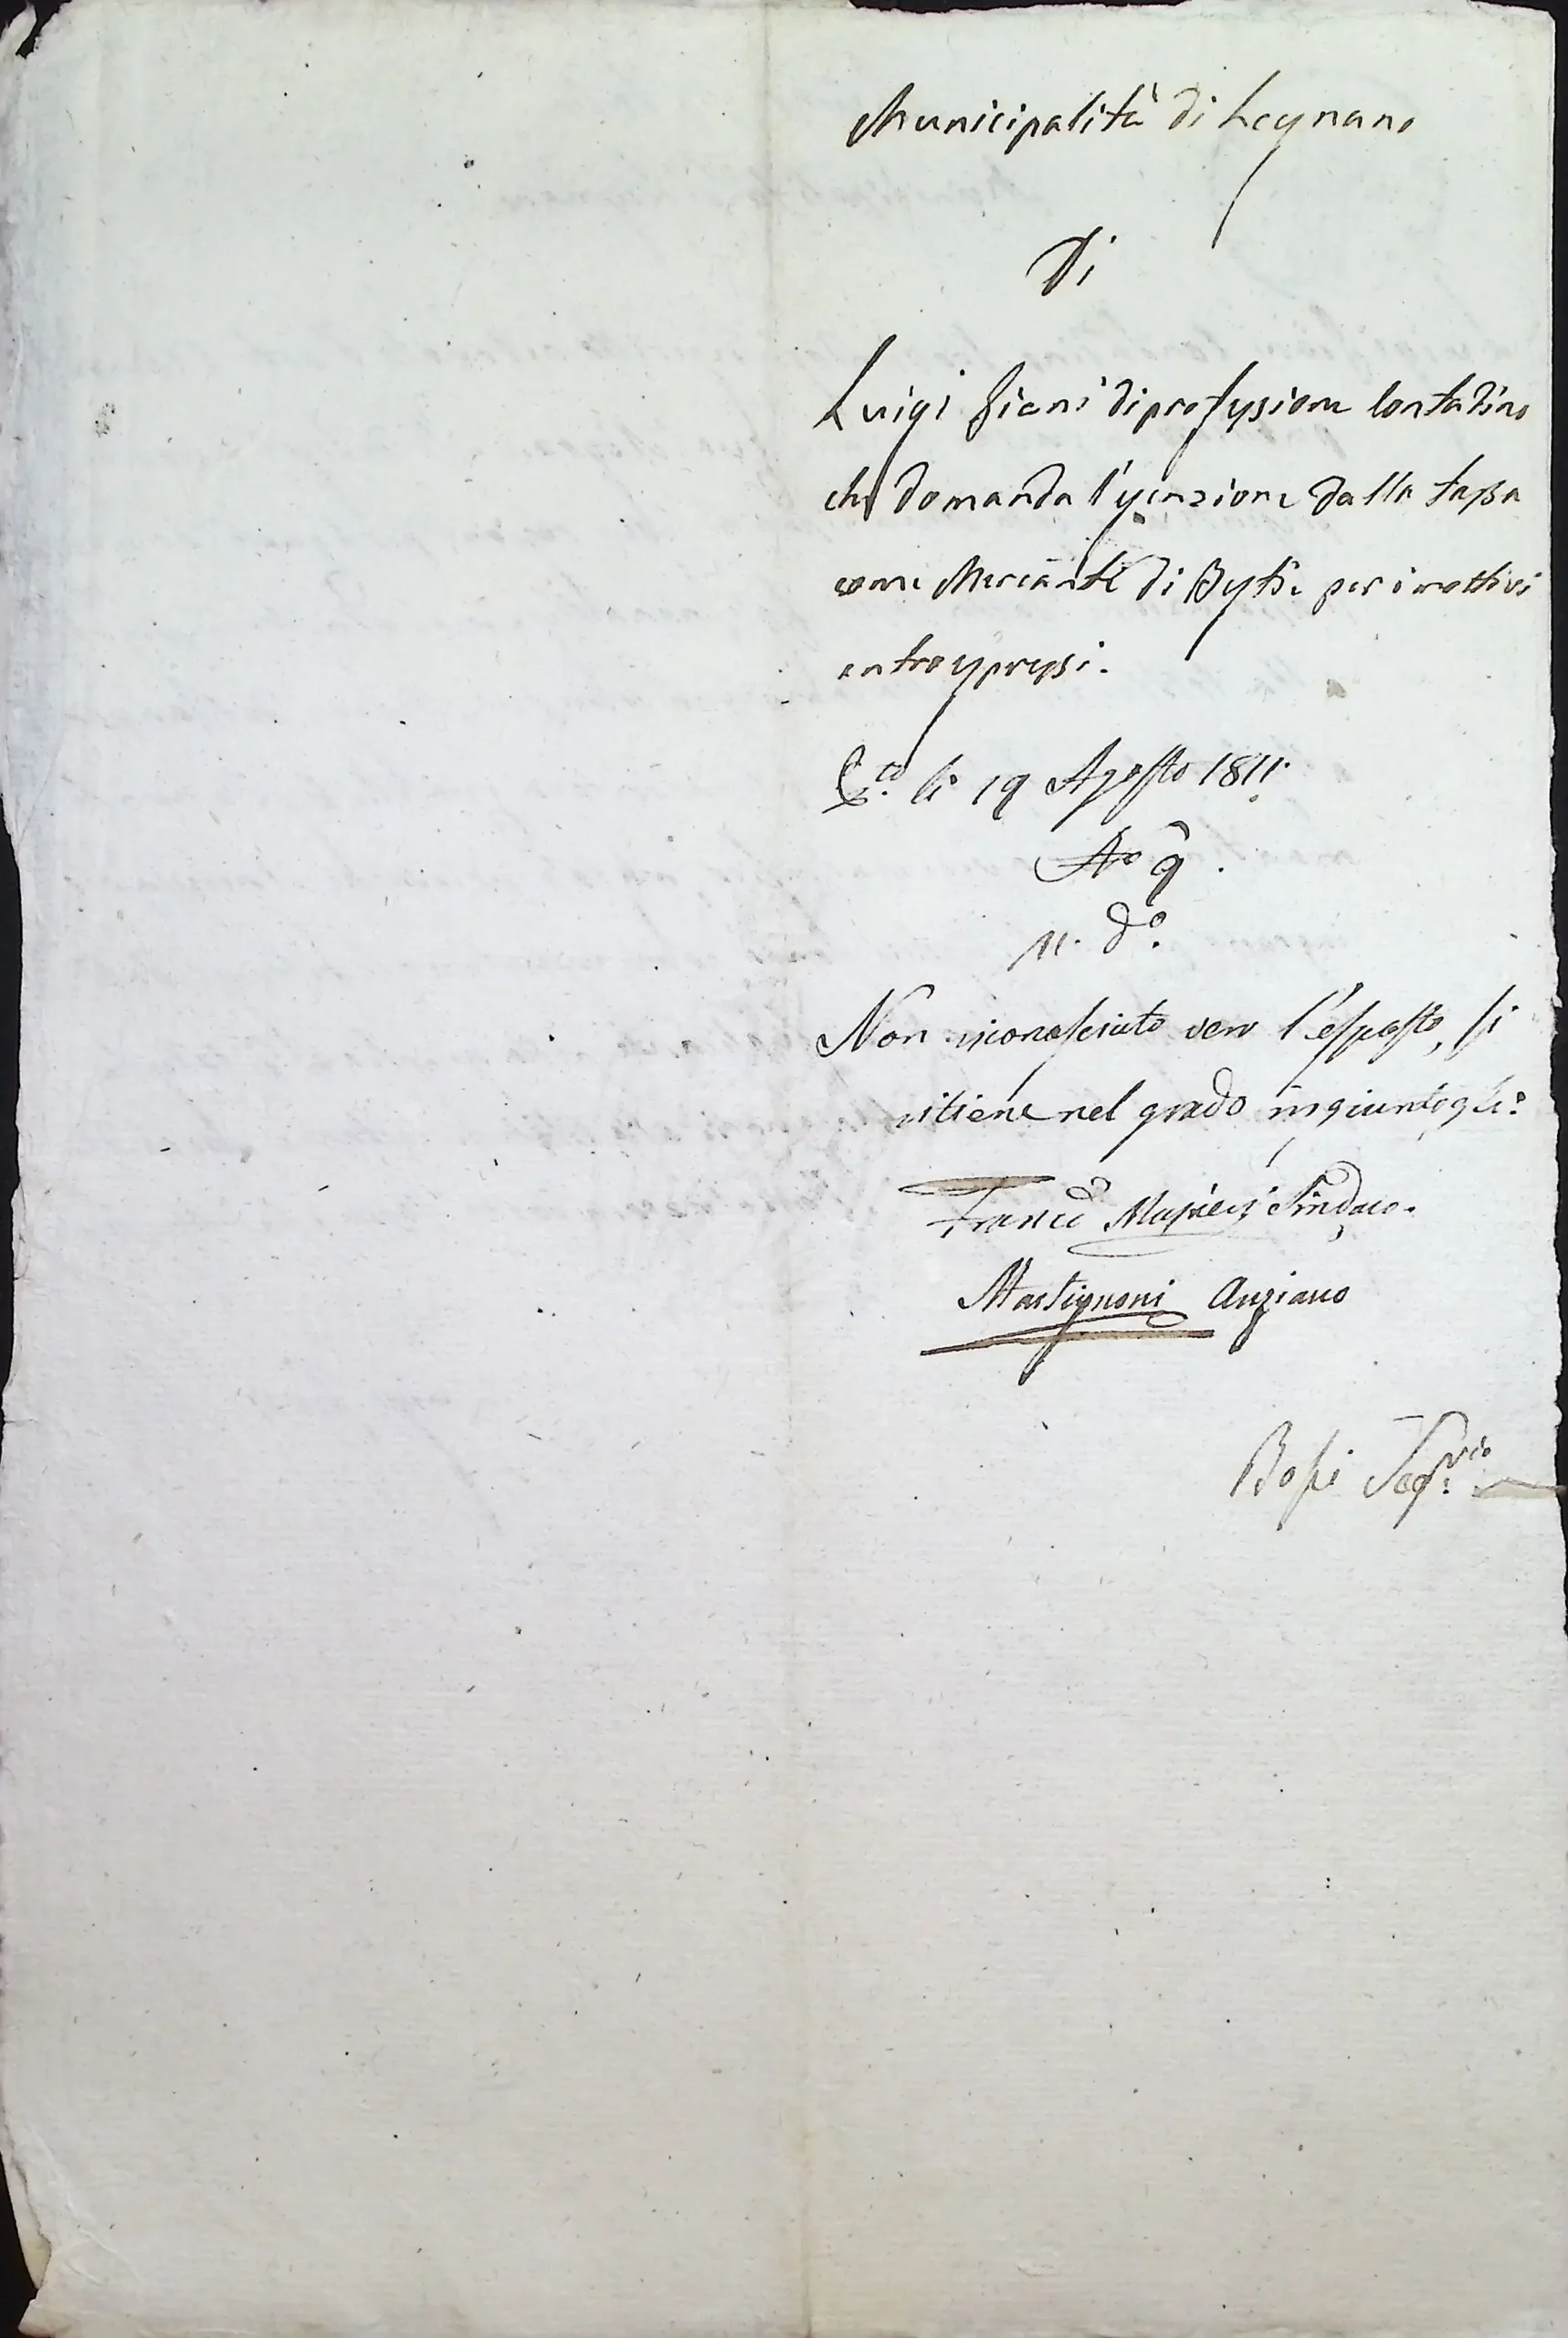 Municipalità di Legnano
Di
Luigi Fieni di professione Contadino
che domanda l'esenzione dalla tassa
come Mercante di Bestie per i mottivi
entro espressi.
li 19 Agosto 1811.
N.° 9.
Non riconosciuto vero l'esposto, si
ritiene nel grado ingiuntogli.
Franco Sindaco.
Martignoni Anziano
Bossi Seg.rio